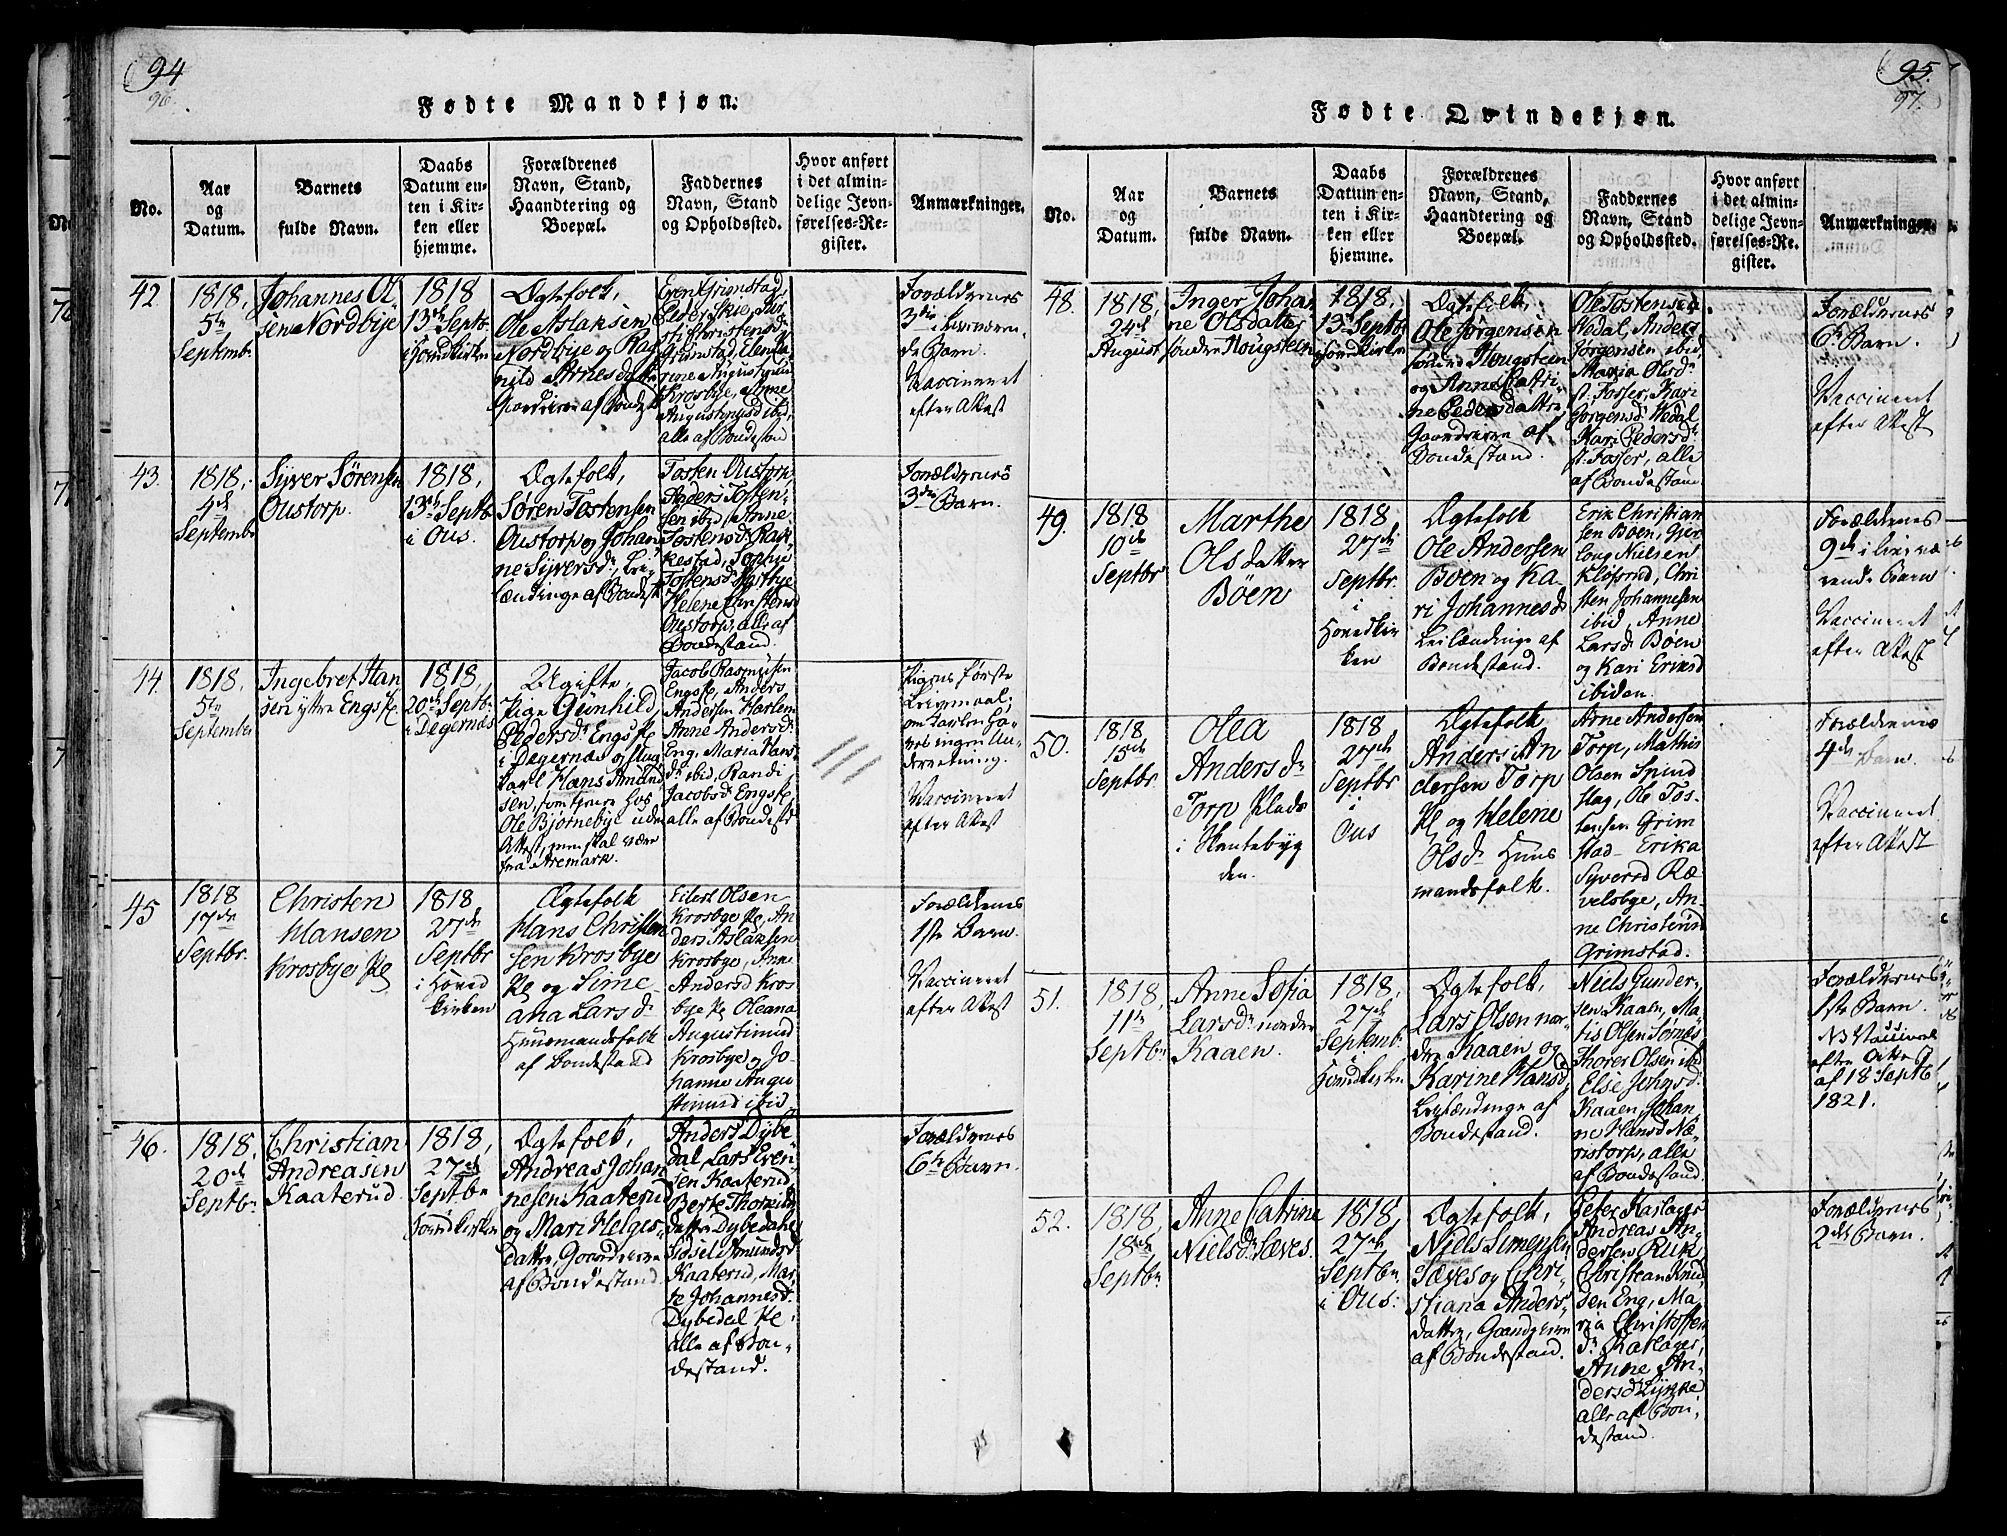 94
96.
Fødte Mandkjøn.
No.
Aar
og
Datum.
Barnets
fulde Navn.
Daabs
Datum en-
ten i Kir-
ken eller
hjemme.
Forældrenes
Navn, Stand,
Haandtering og
Boepæl.
Faddernes
Navn, Stand
og Opholdssted.
Hvor anført
i det almin-
delige Jevn-
førelses-Re-
gister.
Anmærkninger.
42
1818,
5te
Septembr.
Johannes Ol-
sen Nordbye
1818
13de Septbr
i Hovedkirken
Ægtefolk,
Ole Aslaksen
Nordbye og Rag
nild Arnesdatter
Gaardfierere af Bondest
Even Grimstad,
Christensd:
Grimstad,
Krosbye, Anne
Augustinusd ibid,
alle af Bondestand
Forældrenes
3die i
de Barn.
Vaccineret
efter Attest
43.
1818,
4de
Septembr
Syver Sørensen
Oustorp.
1818,
13de Septbr
i Ous.
Ægtefolk,
Søren Tostensen
Oustorp og Johan
ne Syversd:, Lei-
lændinge af Bondest
Tosten Oustorp,
Peders Tosten-
sen ibid, Anne
Tostensd: Rak-
kestad, Sophie
Tostensd:
Helene Christensd
Oustorp, alle af
Bondestand.
Forældrenes
3die Barn.
44.
1818.
5te
September
Ingebret Han
sen yttre Engs Pl
1818,
20de Septbr
i Degernes
Ugifte,
Pige Gunhild
Pedersd: Engs Pl
i Degernes og Ung
karl Hans Amund
sen, som tjener hos
Ole Bjørnebye uden
Attest, men skal være
fra Aremark.
Jacob Rasmusen
Engs Pl, Anders
Andersen Harlem
Anne Andersd:
Eng, Maria Hans
d: ibid, Randi
Jacobsd: Engs Pl
alle af Bondestd
Pigens første
Leiermaal,
om Karlen ha-
ves ingen Un-
derretning.
Vaccineret
efter Attest
45
1818
17de
Septbr.
Christen
Hansen
Krosbye Pl
1818
27de
Septbr
i Hoved
kirken
Ægtefolk
Hans Christen
sen Krosbye
Pl og Sime
ana Lars d:
Huusmandsfolk
af Bondestand
Eilert Olsen
Krosbye Pl, An
ders Aslaksen
Krosbye, Anne
Andersd Kros
bye Pl Oleana
Augustinusd
Krosbye og Jo
hanne Augu
stinusd ibid
Forældrenes
1ste Barn.
Vaccineret
efter Attest
46.
1818.
20de
Septbr:
Christian
Andreasen
Kaaterud
1818,
27de
Septbr
Hovedkirken
Ægtefolk,
Andreas Johan
nesen Kaaterud
og Mari Helges-
datter, Gaardfierere
af Bondestand.
Anders Dybe-
dal, Lars Even-
sen Kaaterud,
Berte
datter Dybedahl
Sidsel Amundsd
Kaaterud, Mar-
te Johannesd.
Dybedal Pl
alle af Bon-
destand.
Forældrenes
6te Barn.
95.
97.
Fødte Qvindekjøn.
No.
Aar
og
Datum.
Barnets
fulde Navn.
Daabs
Datum en-
ten i Kir-
ken eller
hjemme.
Forældrenes
Navn, Stand,
Haandtering og
Boepæl.
Faddernes
Navn, Stand
og Opholdssted.
Hvor anført
i det almin-
delige Jevn-
førelses-Re-
gister.
Anmærkninger.
48.
1818,
24de
August
Inger Johan
ne Olsdatter
søndre Hougsteen
1818.
13de Septbr
Hovedkirken
Ægtefolk,
Ole Jørgensen
søndre Hougsteen
og Anne Catri-
ne Pedersdatter,
Gaardfierere af
Bondestand.
Ole Tostensen
Hedal, Anders
Jørgensen ibid,
Maria Olsd:
Kari
Jørgensd: Hedal
Kari Pedersd:
alle
af Bondestand
Forældrenes
6te Barn.
Vaccineret
efter Attest
49.
1818
10de
Septbr
Marthe
Olsdatter
Böen
1818.
27de
Septbr.
i
Hovedkir
ken
Ægtefolk
Ole Andersen
Boen og Ka-
ri Johannesd:
Leilændinge af
Bondestand.
Erik Christian
sen Boen, Gjer
loug Nielsen
Kløfsrud, Chri
sten Johannesen
ibid, Anne
Larsd: Bøen
og Kari Eriksd
ibidem.
Forældrenes
9de i live væ
rende Barn
Vaccineret
efter Attest
50.
1818
15de
Septbr
Olea
Anders d:
Torp Plads
i Hentebyg
den.
1818
27de
Septbr
i
Ous
Ægtefolk
Anders An
dersen Torp
Pl og Helene
Olsd: Huus
mandsfolk.
Arne Andersen
Torp, Mathis
Olsen Spind
slag, Ole Tos-
tensen Grim
stad, Erika
Syversd Ræ
velsbye, An-
ne Christensd
Grimstad.
Forældrenes
4de Barn.
Vaccineret
efter Attest
51.
1818,
11te
Septbr
Anne Sofia
Larsd: nordre
Kaaen.
1818,
27de
Septembr
Hovedkirken
Ægtefolk,
Lars Olsen nor-
dre Kaaen og
Karine Hansd,
Leilændinge af
Bondestand.
Niels Gunder-
sen Kaaen, Ma-
tis Olsen Sørnæs
Thorer Olsen ibid
Else Johnsd:
Kaaen, Johan-
ne Hansd Næ-
ristorp, alle
af Bondestand.
Forældrenes
1ste Barn.
NB Vaccineret
efter Attest
af 18 Septb
1821.
52.
1818,
18de
Septbr
Anne Catrine
Nielsd: Sæves.
1818,
27de
Septbr,
i Ous:
Ægtefolk,
Niels Simensen
Sæves og Chri-
stiana Anders-
datter, Gaardfierere
af Bondestand.
Peter Kaslager
Andreas An-
dersen Ruk
Christean Knud
sen Eng, Ma-
ria Christoffer
d: Kaslager,
Anne An-
dersd: Lykke
alle af Bon-
destand.
Forældrenes
2de Barn.